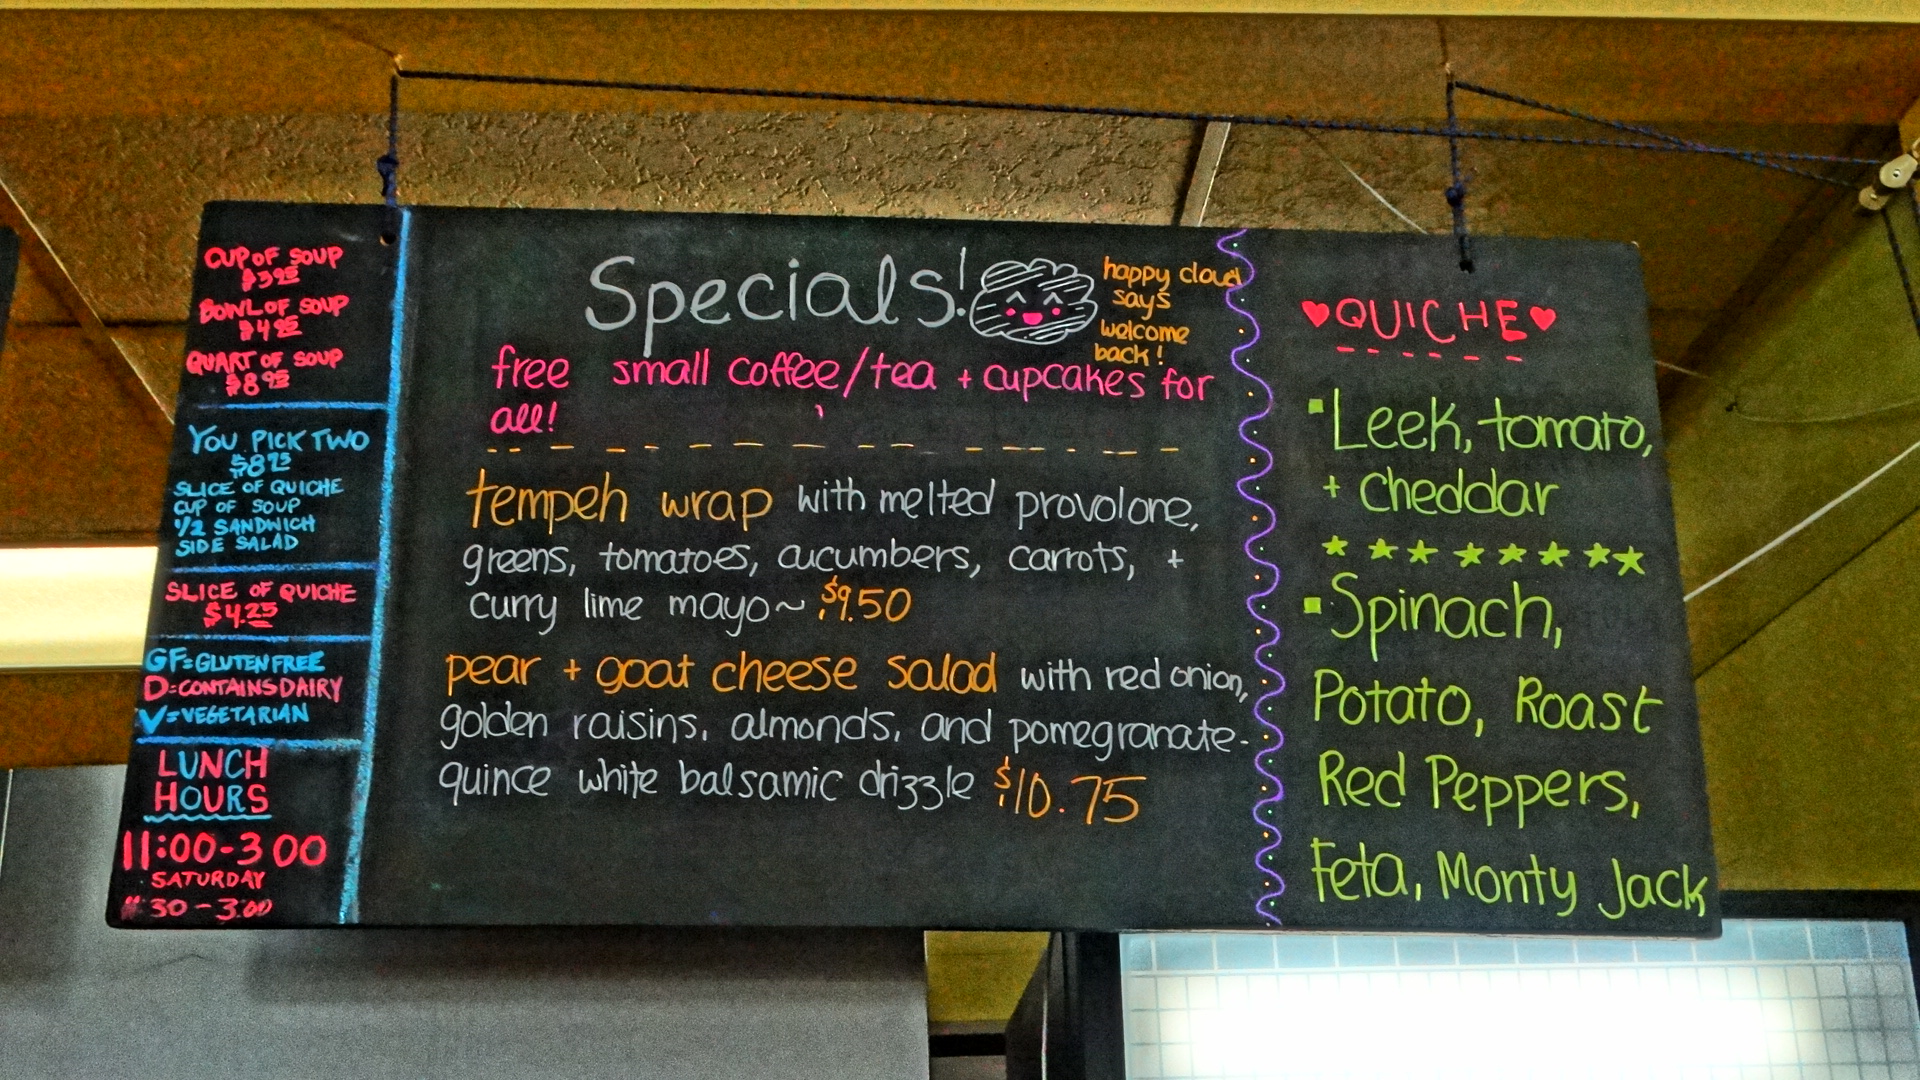 CUP OF SOUP
$3.95
BOWL OF SOUP
$4.95
QUART OF SOUP
$8.95
YOU PICK TWO
$8.75
SLICE OF QUICHE
CUP OF SOUP
1/2 SANDWICH
SIDE SALAD
SLICE OF QUICHE
$4.25
GF=GLUTEN FREE
D=CONTAINS DAIRY
V=VEGETARIAN
LUNCH
HOURS
11:00-3 00
SATURDAY
11:30-3:00
Specials!
happy cloud
says
welcome
back!
free small coffee/tea + cupcakes for
all!
tempeh wrap with melted provolone,
greens, tomatoes, cucumbers, carrots, +
curry lime mayo~ $9.50
pear + goat cheese salad with red onion,
golden raisins, almonds, and pomegranate-
quince white balsamic drizzle $10.75
♥QUICHE♥
▪Leek, tomato,
+ cheddar
▪Spinach,
Potato, Roast
Red Peppers,
Feta, Monty Jack